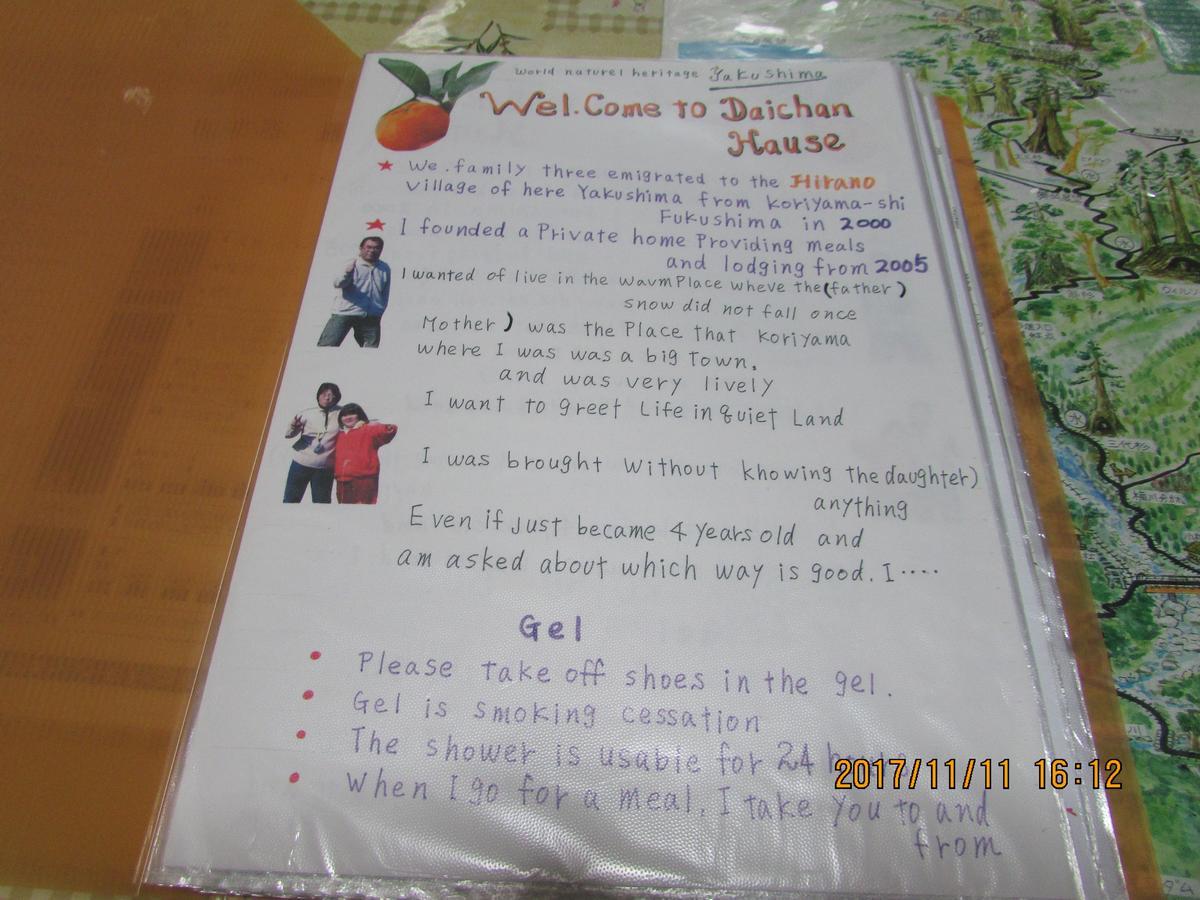 World naturel heritage Yakushima
Wel.Come to Daichan
Hause
★ We.family three emigrated to the Hirano
Village of here Yakushima from Koriyama-shi
Fukushima in 2000
★ I founded a Private home Providing meals
and lodging from 2005
I wanted of live in the wavm Place wheve the (father)
snow did not fall once
Mother) was the Place that Koriyama
where I was was a big Town.
and was very lively
I want to greet Life in quiet Land
I was brought without knowing the daughter)
anything
Even if Just became 4 years old and
am asked about which way is good. I ‥‥
Gel
• Please take off shoes in the gel.
• Gel is smoking cessation
• The shower is usable for 24 hours
• When I go for a meal, I take you to and
from
2017/11/11 16:12
三代杉